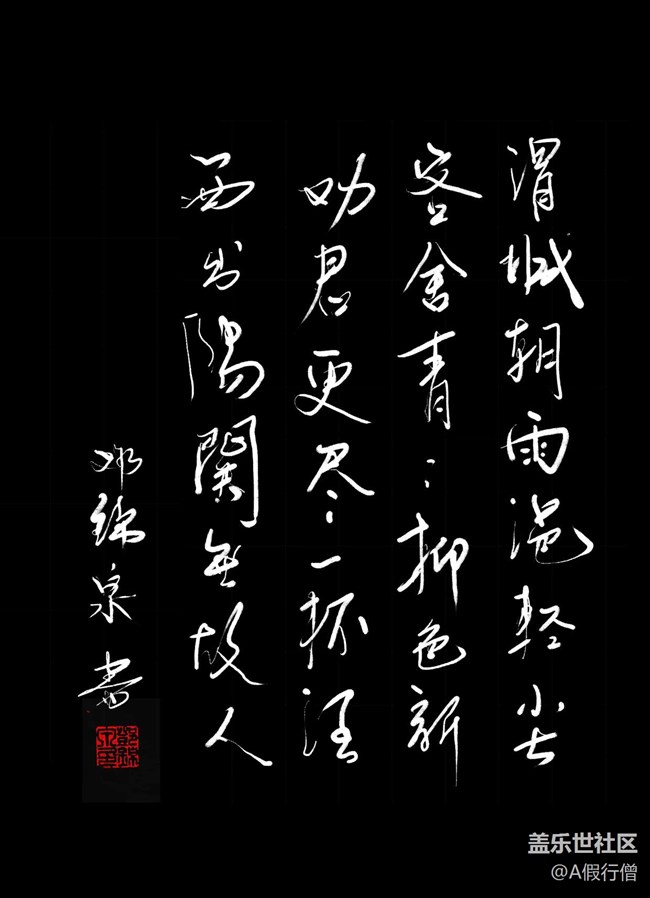 渭城朝雨浥輕尘
客舍青青柳色新
劝君更尽一杯酒
西出陽關無故人
邓錦泉書
盖乐世社区
@A假行僧